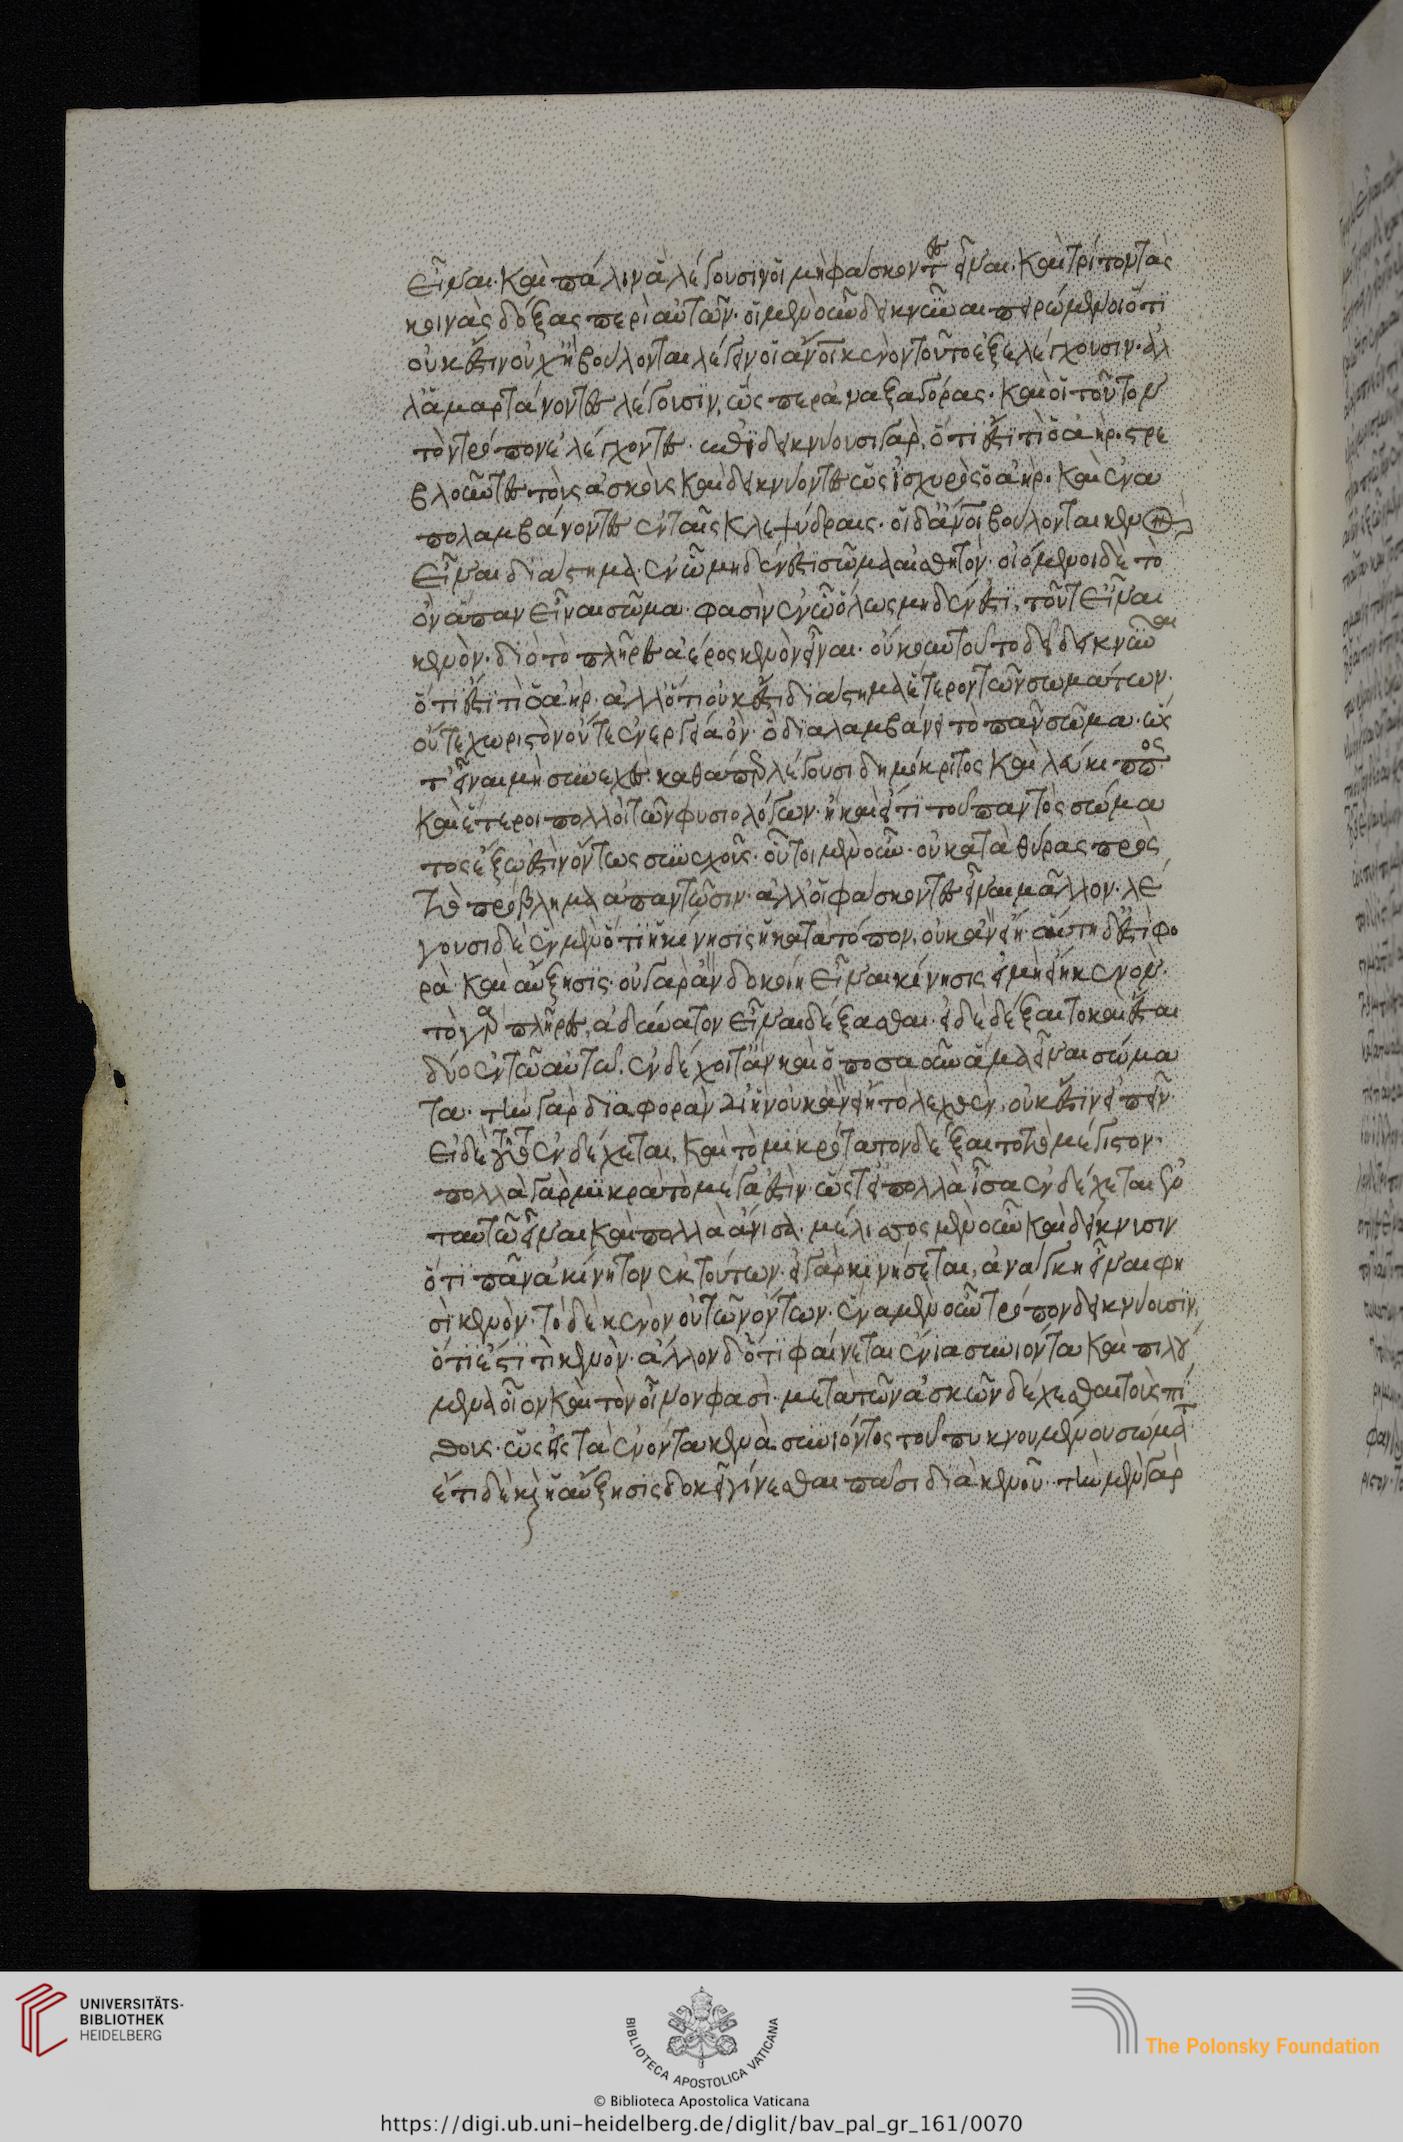 εἶναι· καὶ πάλιν ἃ λέγουσιν οἱ μὴ φάσκοντες εἶναι· καὶ τρίτον τὰς
κοινὰς δόξας περὶ αὐτῶν· οἱ μὲν οὖν δεικνύναι πειρώμενοι ὅτι
οὐκ ἔστιν οὐχ ὃ βούλονται λέγειν οἱ ἄνοι κενὸν τοῦτο ἐξελέγχουσιν· ἀλ
λ' ἁμαρτάνοντες λέγουσιν, ὥσπερ ἀναξαγόρας· καὶ οἱ τοῦτον
τὸν τρόπον ἐλέγχοντες· ἐπιδεικνύουσι γὰρ, ὅτι ἔστι τὶ ὁ ἀήρ· στρε
βλοῦντες τοὺς ἀσκοὺς καὶ δεικνύοντες ὡς ἰσχυρὸς ὁ ἀήρ· καὶ ἐνα
πολαμβάνοντες ἐν ταῖς κλεψύδραις· οἱ δ' ἄνοι βούλονται κενὸν
εἶναι διάστημα· ἐν ᾧ μηδέν ἐστι σῶμα αἰσθητόν· οἰόμενοι δὲ τὸ
ὂν ἅπαν εἶναι σῶμα· φασὶν ἐν ᾧ ὅλως μηδέν ἐστι, τοῦτ' εἶναι
κενὸν· διὸ τὸ πλῆρες ἀέρος κενὸν εἶναι· οὔκουν τοῦτο δεῖ δεικνύναι
ὅτι ἔστι τὶ ὁ ἀήρ· ἀλλ' ὅτι οὐκ ἔστι διάστημα ἕτερον τῶν σωμάτων·
οὔτε χωριστὸν οὔτε ἐνεργείᾳ ὄν· ὃ διαλαμβάνει τὸ πᾶν σῶμα· ὥς
τ' εἶναι μὴ συνεχές· καθάπερ λέγουσι δημόκριτος καὶ λεύκιππος
καὶ ἕτεροι πολλοὶ τῶν φυσιολόγων· ἢ καὶ εἴ τι τοῦ παντὸς σώμα
τος ἔξω ἐστὶν ὄντος συνεχοῦς· οὗτοι μὲν οὖν· οὐ κατὰ θύρας πρὸς
τὸ πρόβλημα ἀπαντῶσιν· ἀλλ' οἱ φάσκοντες εἶναι μᾶλλον· λέ
γουσι δὲ ἓν μὲν ὅτι ἡ κίνησις ἡ κατὰ τόπον, οὐκ ἂν εἴη· αὕτη δ' ἐστὶ φο
ρὰ καὶ αὔξησις· οὐ γὰρ ἂν δοκοίη εἶναι κίνησις εἰ μὴ εἴη κενόν·
τὸ γὰρ πλῆρες, ἀδύνατον εἶναι δέξασθαι· εἰ δὲ δέξαιτο καὶ ἔσται
δύο ἐν τῶ αὐτῶ, ἐνδέχοιτ' ἂν καὶ ὁποσαοῦν ἅμα εἶναι σώμα
τα· τὴν γὰρ διαφορὰν δι' ἣν οὐκ ἂν εἴη τὸ λεχθὲν, οὐκ ἔστιν εἰπεῖν·
εἰ δὲ τοῦτο ἐνδέχεται, καὶ τὸ μικρότατον δέξαιτο τὸ μέγιστον·
πολλὰ γὰρ μικρὰ τὸ μέγα ἐστίν· ὥστ' εἰ πολλὰ ἴσα ἐνδέχεται ἐν
ταυτῶ εἶναι καὶ πολλὰ ἄνισα· μέλισσος μὲν οὖν καὶ δείκνυσιν
ὅτι πᾶν ἀκίνητον ἐκ τούτων· εἰ γὰρ κινήσεται, ἀνάγκη εἶναι φη
σὶ κενὸν· τὸ δὲ κενὸν οὐ τῶν ὄντων· ἕνα μὲν οὖν τρόπον δεικνύουσιν,
ὅτι ἐστί τι κενὸν· ἄλλον δ' ὅτι φαίνεται ἔνια συνιόντα καὶ πιλού
μενα οἷον καὶ τὸν οἶνον φασὶ· μετὰ τῶν ἀσκῶν δέχεσθαι τοὺς πί
θους· ὡς εἰς τὰ ἐνόντα κενὰ συνιόντος τοῦ πυκνουμένου σώματος
ἔτι δὲ καὶ ἡ αὔξησις δοκεῖ γίνεσθαι πᾶσι διὰ κενοῦ· τὴν μὲν γὰρ
UNIVERSITÄTS-
BIBLIOTHEK
HEIDELBERG
BIBLIOTECA APOSTOLICA VATICANA
The Polonsky Foundation
© Biblioteca Apostolica Vaticana
https://digi.ub.uni-heidelberg.de/diglit/bav_pal_gr_161/0070